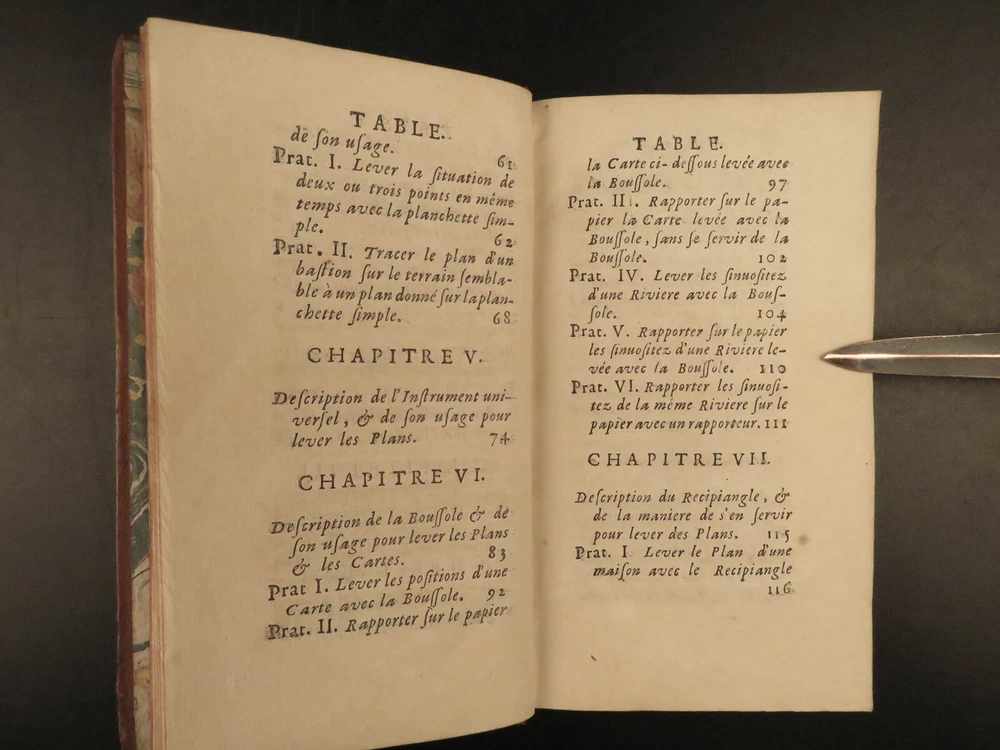 TABLE.
de ſon uſage. 61
Prat. I. Lever la ſituation de
deux ou trois points en même
temps avec la planchette ſim-
ple. 62
Prat. II. Tracer le plan d'un
baſtion ſur le terrain ſembla-
ble à un plan donné ſur la plan-
chette ſimple. 68
CHAPITRE V.
Deſcription de l'Inſtrument uni-
verſel, & de ſon uſage pour
lever les Plans. 74
CHAPITRE VI.
Deſcription de la Bouſſole & de
ſon uſage pour lever les Plans
& les Cartes. 83
Prat I. Lever les poſitions d'une
Carte avec la Bouſſole. 92
Prat. II. Rapporter ſur le papier
TABLE.
la Carte ci-deſſous levée avec
la Bouſſole. 97
Prat. III. Rapporter ſur le pa-
pier la Carte levée avec la
Bouſſole, ſans ſe ſervir de la
Bouſſole. 102
Prat. IV. Lever les ſinuoſitez
d'une Riviere avec la Bouſ-
ſole. 104
Prat. V. Rapporter ſur le papier
les ſinuoſitez d'une Riviere le-
vée avec la Bouſſole. 110
Prat. VI. Rapporter les ſinuoſi-
tez de la même Riviere ſur le
papier avec un rapporteur. 111
CHAPITRE VII.
Deſcription du Recipiangle, &
de la maniere de s'en ſervir
pour lever des Plans. 115
Prat. I. Lever le Plan d'une
maiſon avec le Recipiangle
116